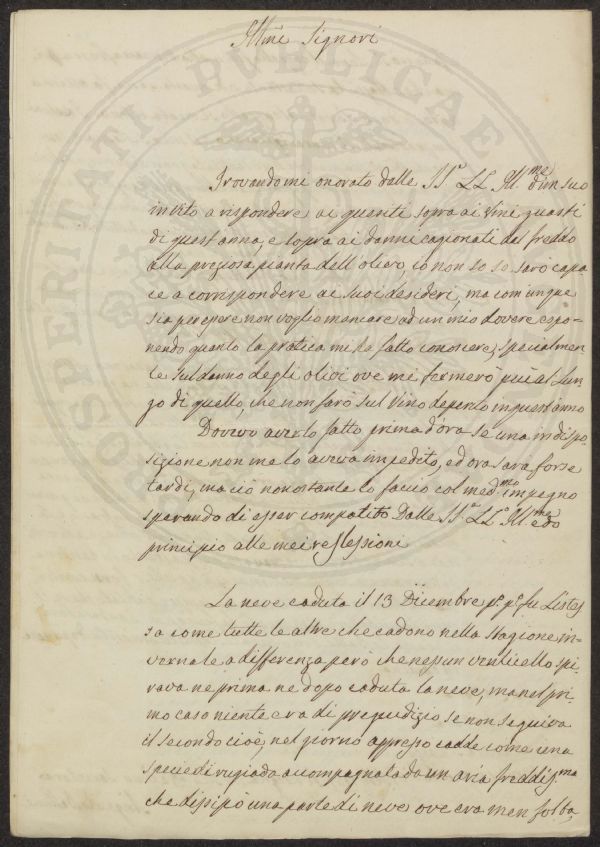 Illmi Signori
Trovandomi onorato dalle SS.re LL. Ill.me d'un suo
invito a rispondere ai quesiti sopra ai Vini guasti
di quest'anno, e sopra ai danni cagionati dal freddo
alla preziosa pianta dell'olivo, io non so se sarò capa
ce a corrispondere ai suoi desideri, ma comunque
sia per essere non voglio mancare ad un mio dovere espo-
nendo quanto la pratica mi ha fatto conoscere, specialmen
te sul danno degli olivi ove mi fermerò più a lun
go di quello, che non farò sul Vino deperito in quest'anno
Dovevo averlo fatto prima d'ora se una indispo
sizione non me lo aveva impedito, ed ora sarà forse
tardi, ma ciò nonostante lo faccio col med.mo impegno
sperando di esser compatito Dalle SS.re LL.e Ill.me e do
principio alle mei reflessioni
La neve caduta il 13 Dicembre p.o p.o fu l'istes
sa come tutte le altre che cadono nella stagione in-
vernale a differenza però che nessun venticello spi
rava ne prima ne dopo caduta la neve, ma nel pri
mo caso niente era di pregiudizio se non seguiva
il secondo cioè, nel giorno appresso cadde come una
specie di rugiada accompagnata da un aria freddiss.ma
che dissipò una parte di neve ove era men folta,
PROSPERITATI PUBLICAE